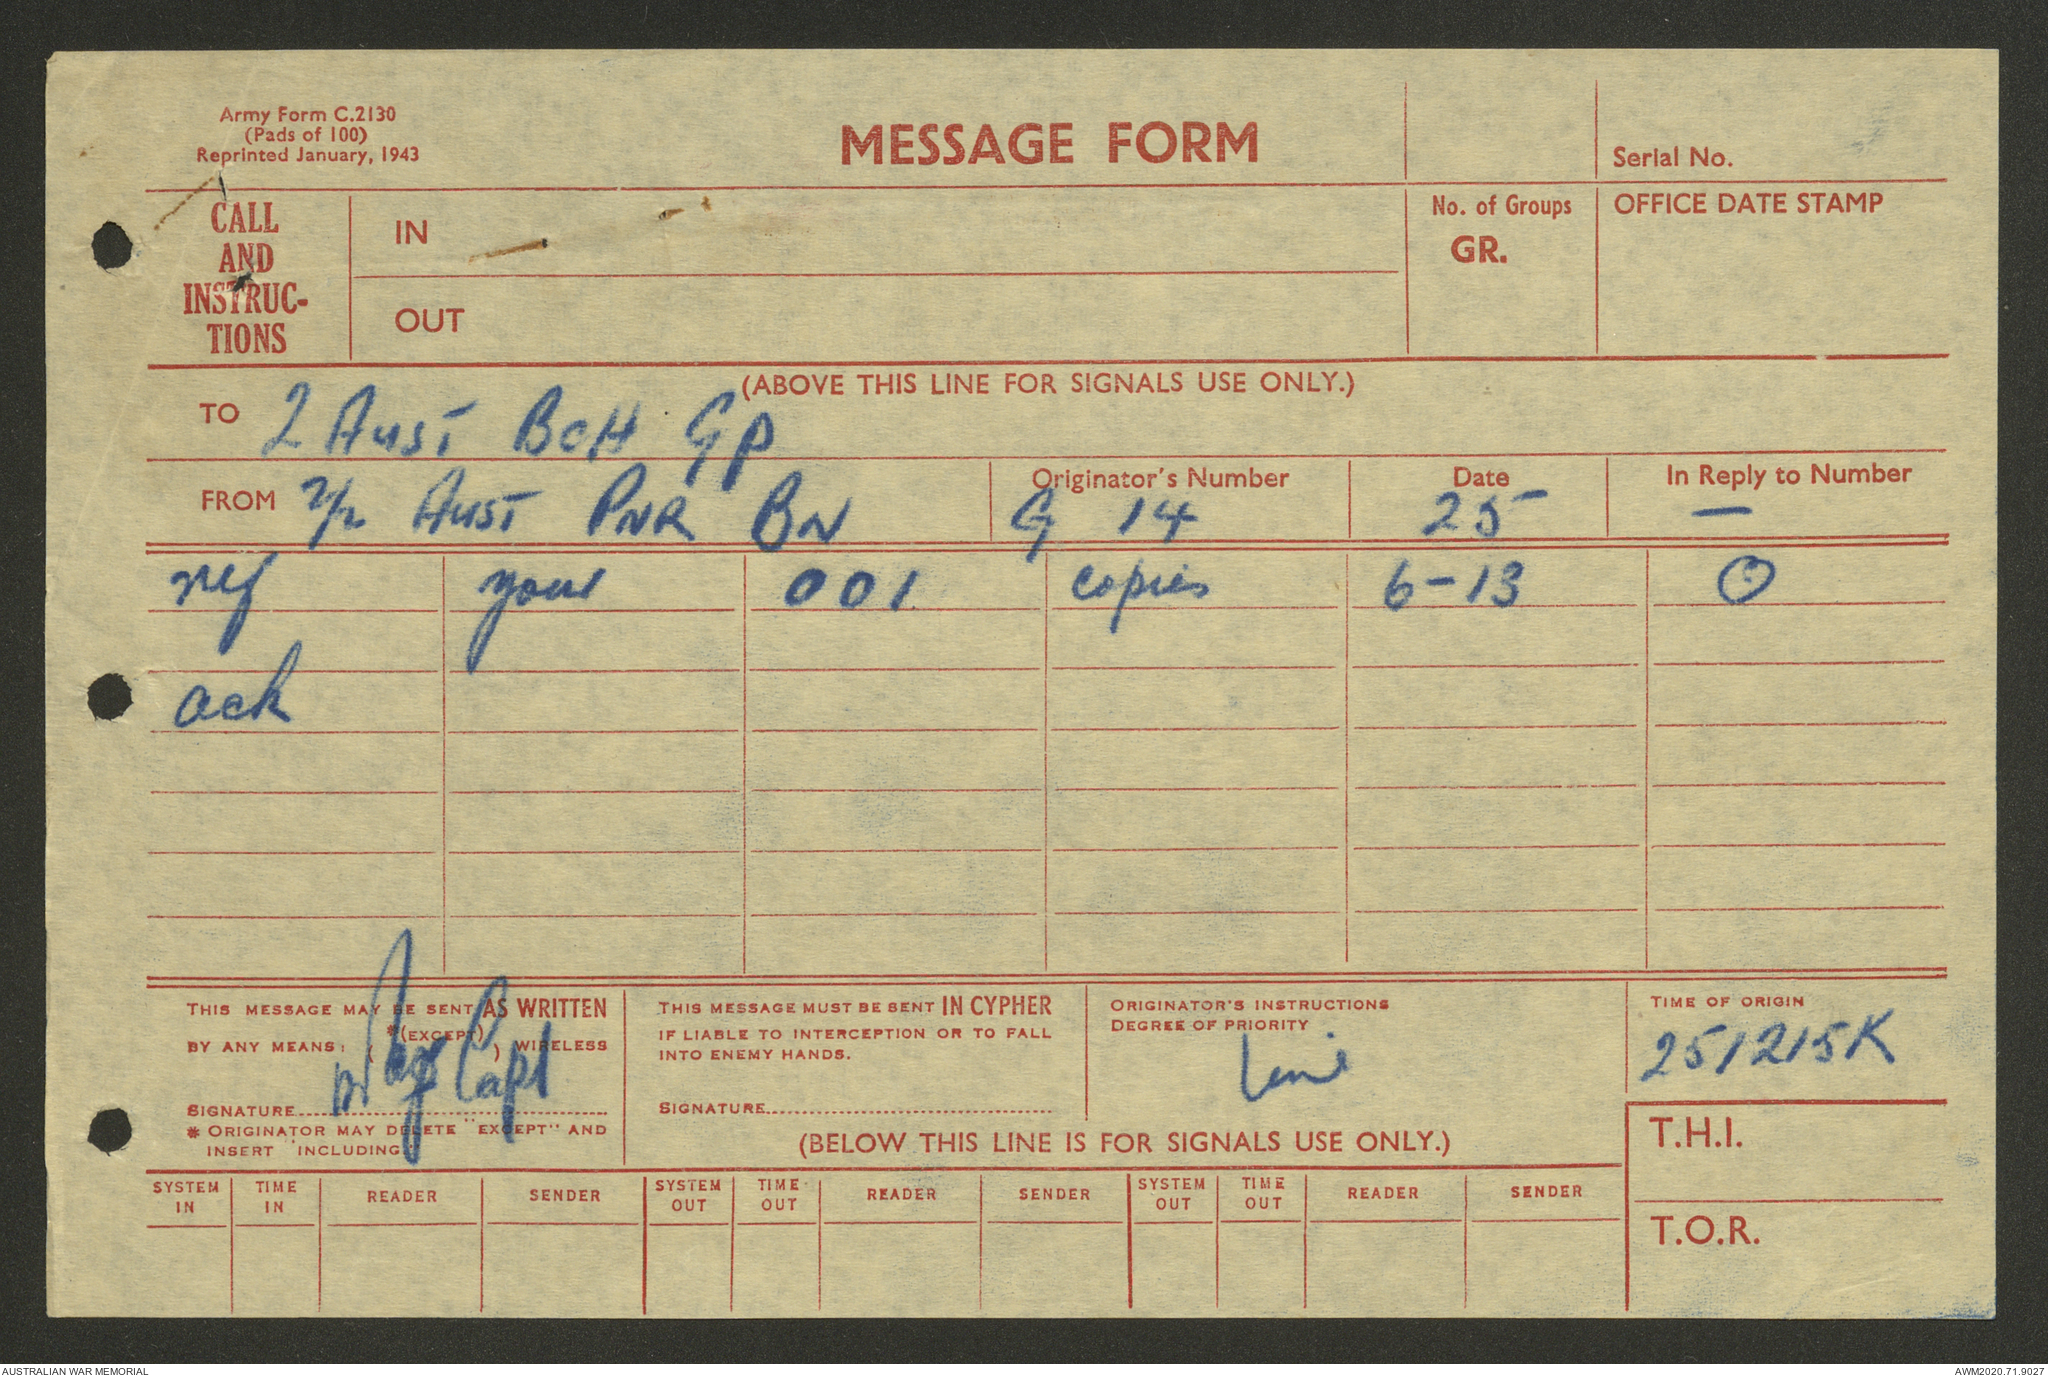 Army Form C.2130
(Pads of 100)
Reprinted January, 1943
MESSAGE FORM
Serial No.
CALL
AND
INSTRUC-
TIONS
IN
OUT
No. of Groups
GR.
OFFICE DATE STAMP
(ABOVE THIS LINE FOR SIGNALS USE ONLY.)
TO 2 AUST BCH GP
FROM 2/2 AUST PNR BN
Originator's Number
G 14
Date
25
In Reply to Number
—
ref your 001 copies 6-13 O
ack
THIS MESSAGE MAY BE SENT AS WRITTEN
BY ANY MEANS: *(EXCEPT) WIRELESS
Capt
SIGNATURE
* ORIGINATOR MAY DELETE "EXCEPT" AND
INSERT "INCLUDING
THIS MESSAGE MUST BE SENT IN CYPHER
IF LIABLE TO INTERCEPTION OR TO FALL
INTO ENEMY HANDS.
SIGNATURE
ORIGINATOR'S INSTRUCTIONS
DEGREE OF PRIORITY
TIME OF ORIGIN
251215K
(BELOW THIS LINE IS FOR SIGNALS USE ONLY.)
T.H.I.
T.O.R.
SYSTEM IN TIME IN READER SENDER SYSTEM OUT TIME OUT READER SENDER SYSTEM OUT TIME OUT READER SENDER
AUSTRALIAN WAR MEMORIAL
AWM2020.71.9027